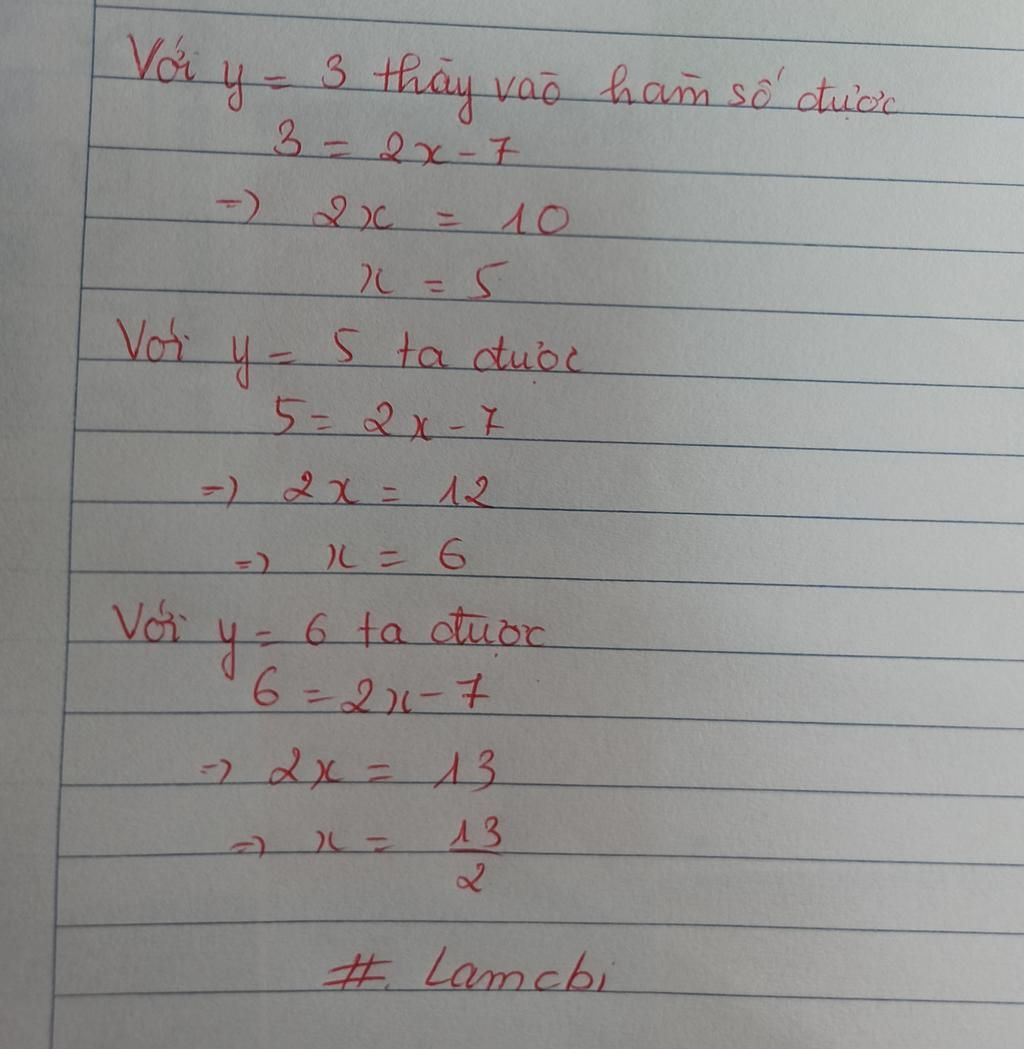 Với y = 3 thay vào hàm số được
3 = 2x - 7
=> 2x = 10
x = 5
Với y = 5 ta được
5 = 2x - 7
=> 2x = 12
=> x = 6
Với y = 6 ta được
6 = 2x - 7
=> 2x = 13
=> x = 13/2
#. Lamcbi